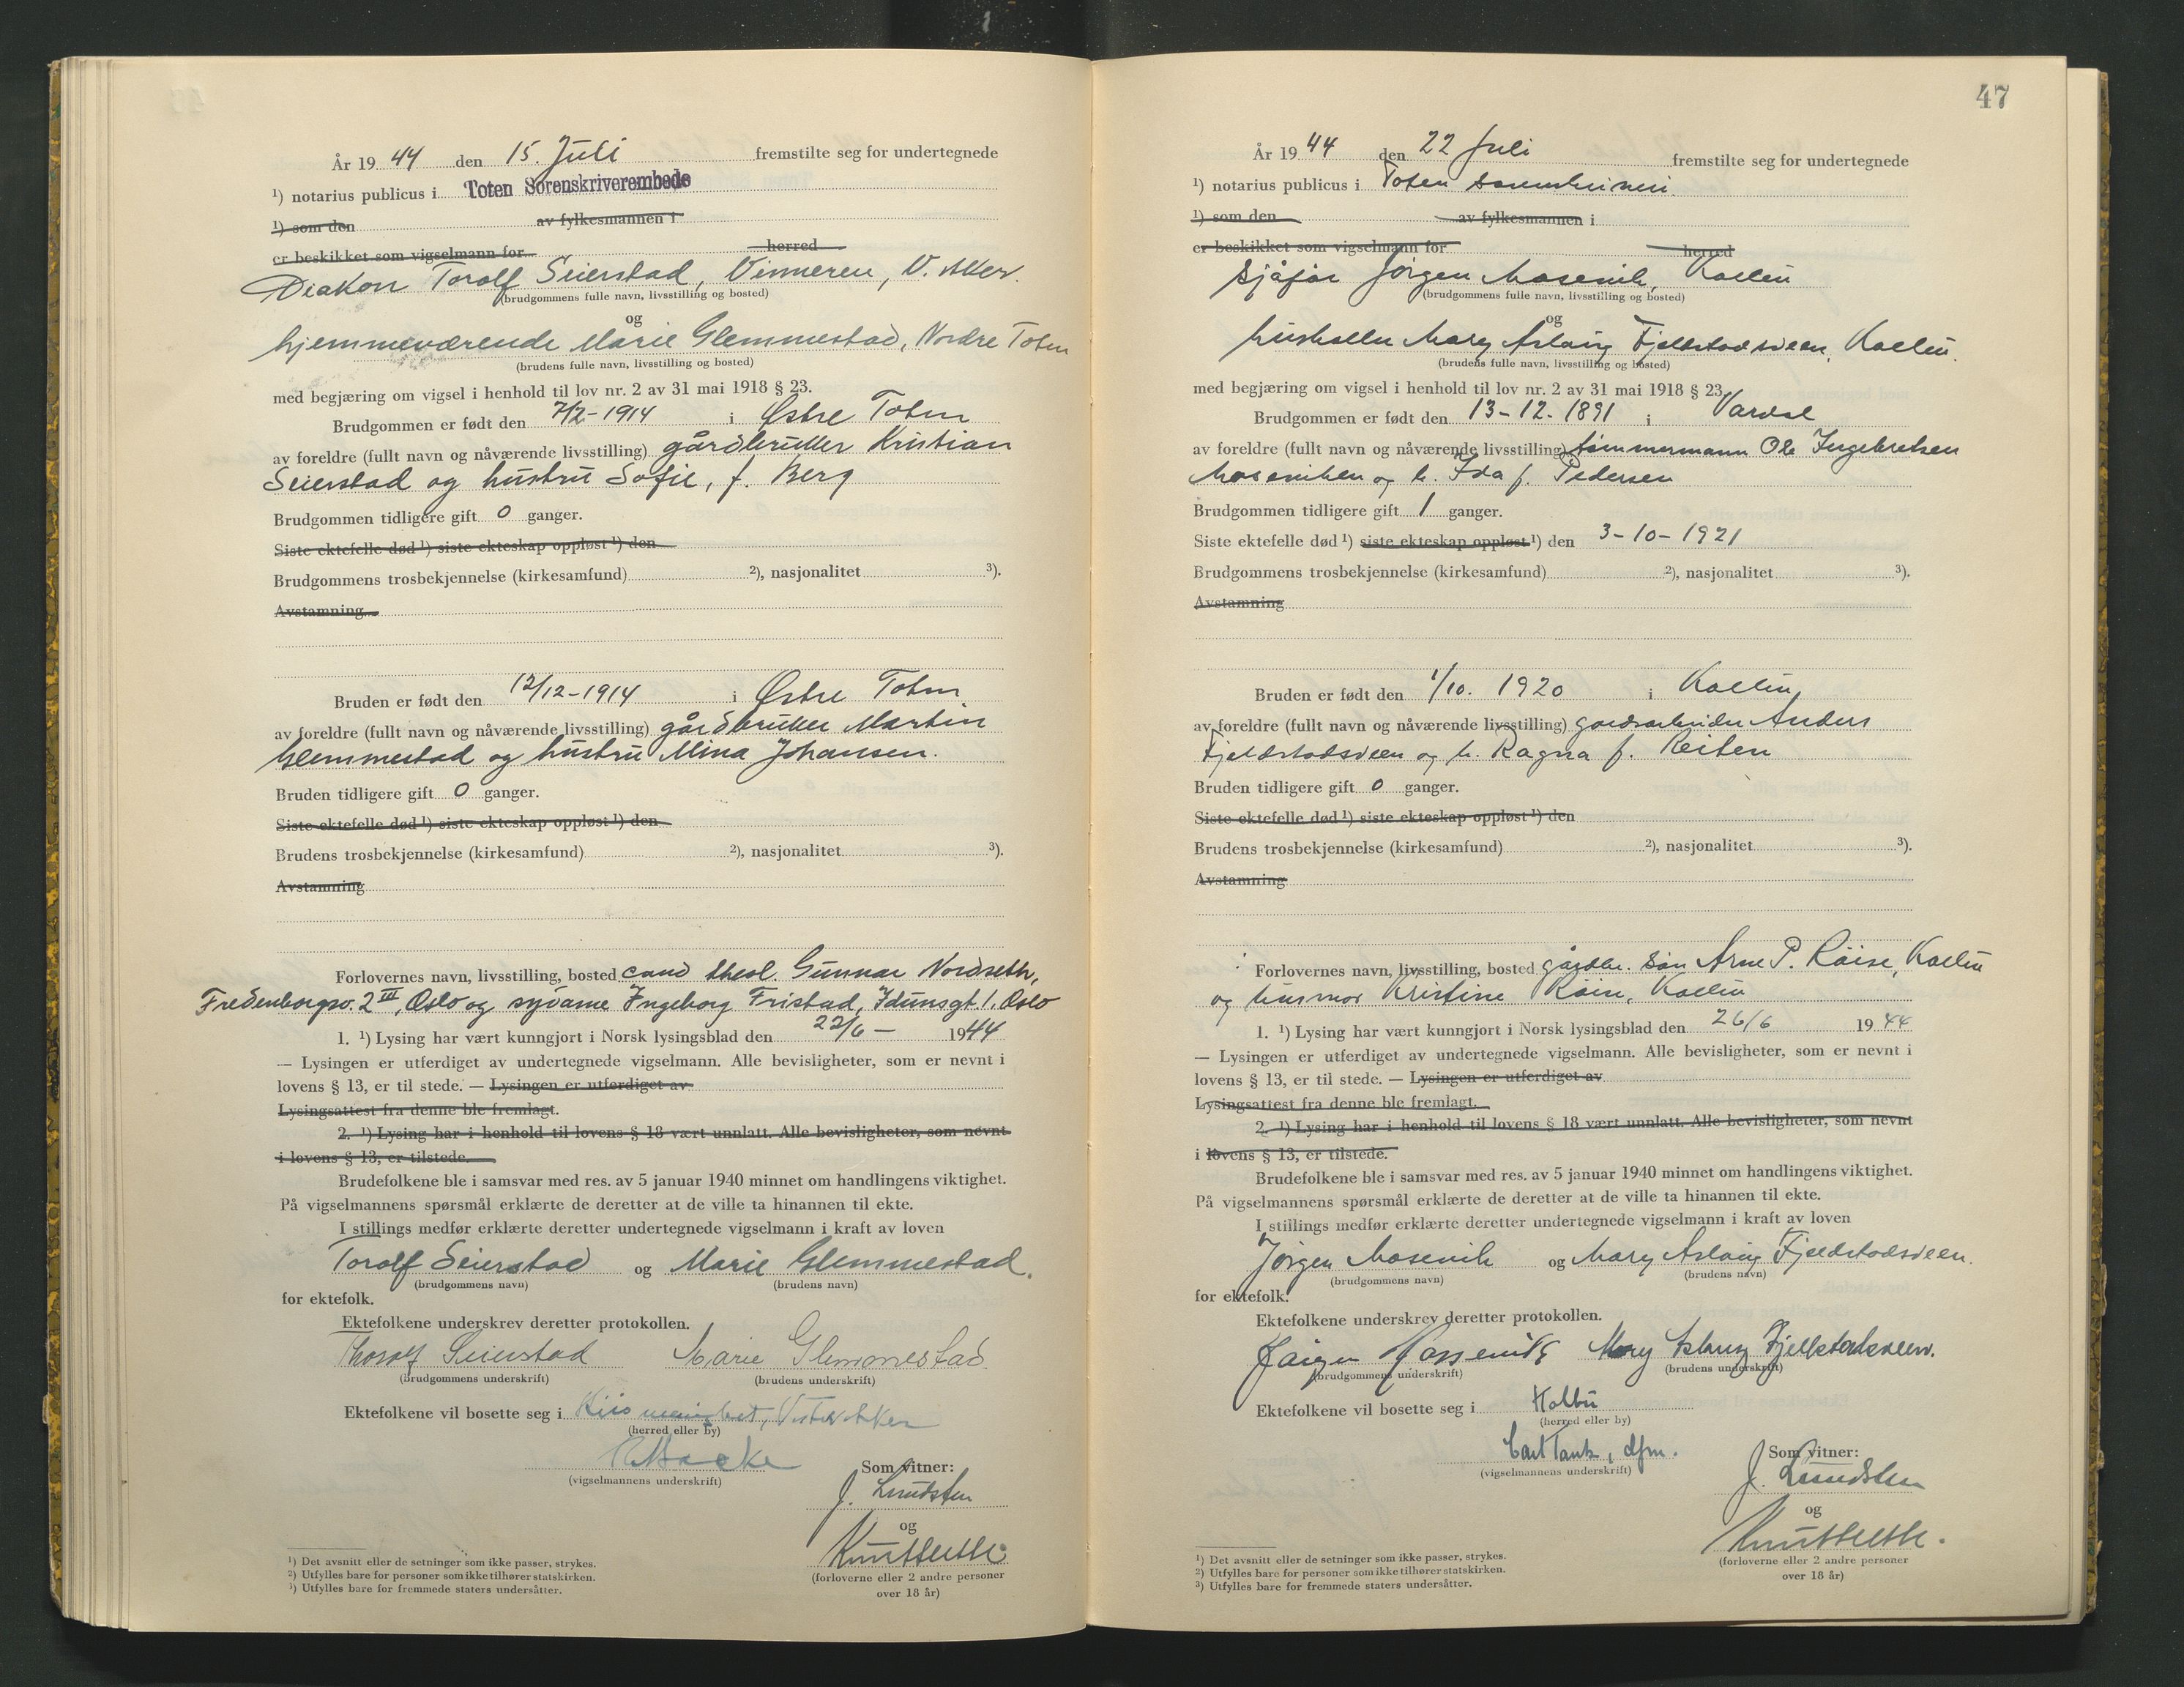 År 19 44 den 15. Juli fremstilte seg for undertegnede
¹) notarius publicus i Toten Sorenskriverembede
¹) som den av fylkesmannen i
er beskikket som vigselmann for herred
Diakon Torolf Seierstad, Vinneren, V. Aker.
(brudgommens fulle navn, livsstilling og bosted)
og
hjemmeværende Marie Glemmestad, Nordre Toten
(brudens fulle navn, livsstilling og bosted)
med begjæring om vigsel i henhold til lov nr. 2 av 31 mai 1918 § 23.
Brudgommen er født den 7/2-1914 i Østre Toten
av foreldre (fullt navn og nåværende livsstilling) gårdbruker Kristian
Seierstad og hustru Sofie, f. Berg
Brudgommen tidligere gift 0 ganger.
Siste ektefelle død ¹) siste ekteskap oppløst ¹) den
Brudgommens trosbekjennelse (kirkesamfund) ²), nasjonalitet ³).
Avstamning
Bruden er født den 12/12-1914 i Østre Toten
av foreldre (fullt navn og nåværende livsstilling) gårdbruker Martin
Glemmestad og hustru Mina Johansen.
Bruden tidligere gift 0 ganger.
Siste ektefelle død ¹) siste ekteskap oppløst ¹) den
Brudens trosbekjennelse (kirkesamfund) ²), nasjonalitet ³).
Avstamning
Forlovernes navn, livsstilling, bosted cand theol. Gunnar Nordseth,
Fredenborgsv. 2 III, Oslo og sydame Ingeborg Fristad, Idunsgt. 1. Oslo
1. ¹) Lysing har vært kunngjort i Norsk lysingsblad den 22/6 - 1944
— Lysingen er utferdiget av undertegnede vigselmann. Alle bevisligheter, som er nevnt i
lovens § 13, er til stede. — Lysingen er utferdiget av
Lysingsattest fra denne ble fremlagt.
2. ¹) Lysing har i henhold til lovens § 18 vært unnlatt. Alle bevisligheter, som nevnt
i lovens § 13, er tilstede.
Brudefolkene ble i samsvar med res. av 5 januar 1940 minnet om handlingens viktighet.
På vigselmannens spørsmål erklærte de deretter at de ville ta hinannen til ekte.
I stillings medfør erklærte deretter undertegnede vigselmann i kraft av loven
Torolf Seierstad og Marie Glemmestad.
(brudgommens navn) (brudens navn)
for ektefolk.
Ektefolkene underskrev deretter protokollen.
Thorolf Seierstad Marie Glemmestad
(brudgommens underskrift) (brudens underskrift)
Ektefolkene vil bosette seg i Riis menighet, Vestre Aker
(herred eller by)
(vigselmannens underskrift)
Som vitner:
J. Lundsten
og
(forloverne eller 2 andre personer
over 18 år)
¹) Det avsnitt eller de setninger som ikke passer, strykes.
²) Utfylles bare for personer som ikke tilhører statskirken.
³) Utfylles bare for fremmede staters undersåtter.
47
År 19 44 den 22 Juli fremstilte seg for undertegnede
¹) notarius publicus i Toten
¹) som den av fylkesmannen i
er beskikket som vigselmann for herred
Sjåfør Jørgen Mosevik, Kolbu
(brudgommens fulle navn, livsstilling og bosted)
og
Mary Aslaug Fjeldstadsveen, Kolbu.
(brudens fulle navn, livsstilling og bosted)
med begjæring om vigsel i henhold til lov nr. 2 av 31 mai 1918 § 23.
Brudgommen er født den 13-12-1891 i Vardal
av foreldre (fullt navn og nåværende livsstilling) tømmermann Ole Ingebretsen
og h. Ida f. Pedersen
Brudgommen tidligere gift 1 ganger.
Siste ektefelle død ¹) siste ekteskap oppløst ¹) den 3-10-1921
Brudgommens trosbekjennelse (kirkesamfund) ²), nasjonalitet ³).
Avstamning
Bruden er født den 1/10. 1920 i Kolbu
av foreldre (fullt navn og nåværende livsstilling) gårdsarbeider Anders
Fjeldstadsveen og h. Ragna f. Reiten
Bruden tidligere gift 0 ganger.
Siste ektefelle død ¹) siste ekteskap oppløst ¹) den
Brudens trosbekjennelse (kirkesamfund) ²), nasjonalitet ³).
Avstamning
Forlovernes navn, livsstilling, bosted gårdbr. søn Arne P. Røise, Kolbu
og husmor Kristine Røise, Kolbu
1. ¹) Lysing har vært kunngjort i Norsk lysingsblad den 26/6 19 44
— Lysingen er utferdiget av undertegnede vigselmann. Alle bevisligheter, som er nevnt i
lovens § 13, er til stede. — Lysingen er utferdiget av
Lysingsattest fra denne ble fremlagt.
2. ¹) Lysing har i henhold til lovens § 18 vært unnlatt. Alle bevisligheter, som nevnt
i lovens § 13, er tilstede.
Brudefolkene ble i samsvar med res. av 5 januar 1940 minnet om handlingens viktighet.
På vigselmannens spørsmål erklærte de deretter at de ville ta hinannen til ekte.
I stillings medfør erklærte deretter undertegnede vigselmann i kraft av loven
Jørgen Mosevik og Mary Aslaug Fjeldstadsveen.
(brudgommens navn) (brudens navn)
for ektefolk.
Ektefolkene underskrev deretter protokollen.
Jørgen Mary Aslaug Fjellstadsveen.
(brudgommens underskrift) (brudens underskrift)
Ektefolkene vil bosette seg i Kolbu
(herred eller by)
Carl Tank, dfm.
(vigselmannens underskrift)
Som vitner:
J. Lundsten
og
(forloverne eller 2 andre personer
over 18 år)
¹) Det avsnitt eller de setninger som ikke passer, strykes.
²) Utfylles bare for personer som ikke tilhører statskirken.
³) Utfylles bare for fremmede staters undersåtter.